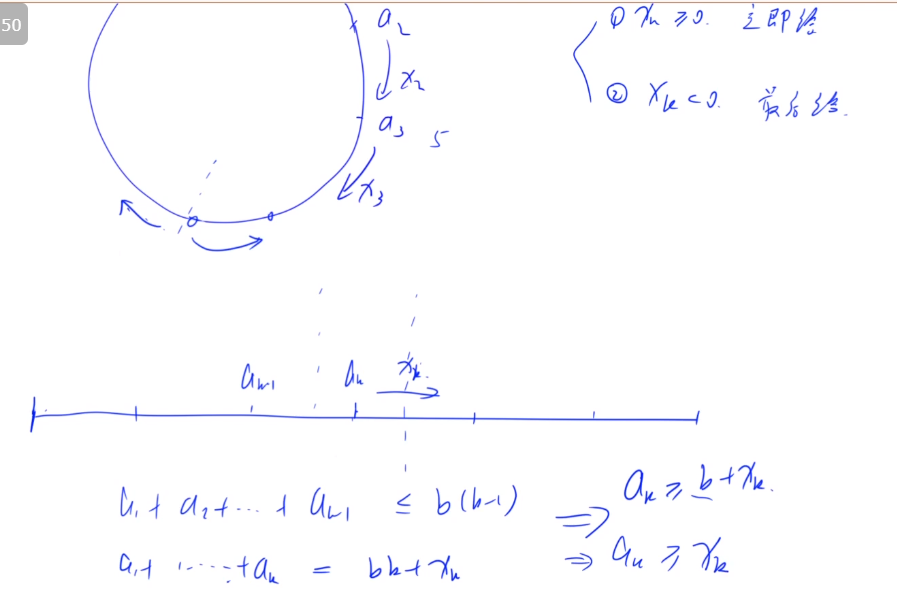 50
a₂
x₂
a₃ 5
x₃
① xₖ ≥ 0. 立即给
② xₖ < 0. 最后给.
aₖ₋₁ aₖ xₖ.
a₁ + a₂ + ... + aₖ₋₁ ≤ b(k-1) ⇒ aₖ ≥ b + xₖ.
a₁ + ...... + aₖ = bk + xₖ ⇒ aₖ ≥ xₖ